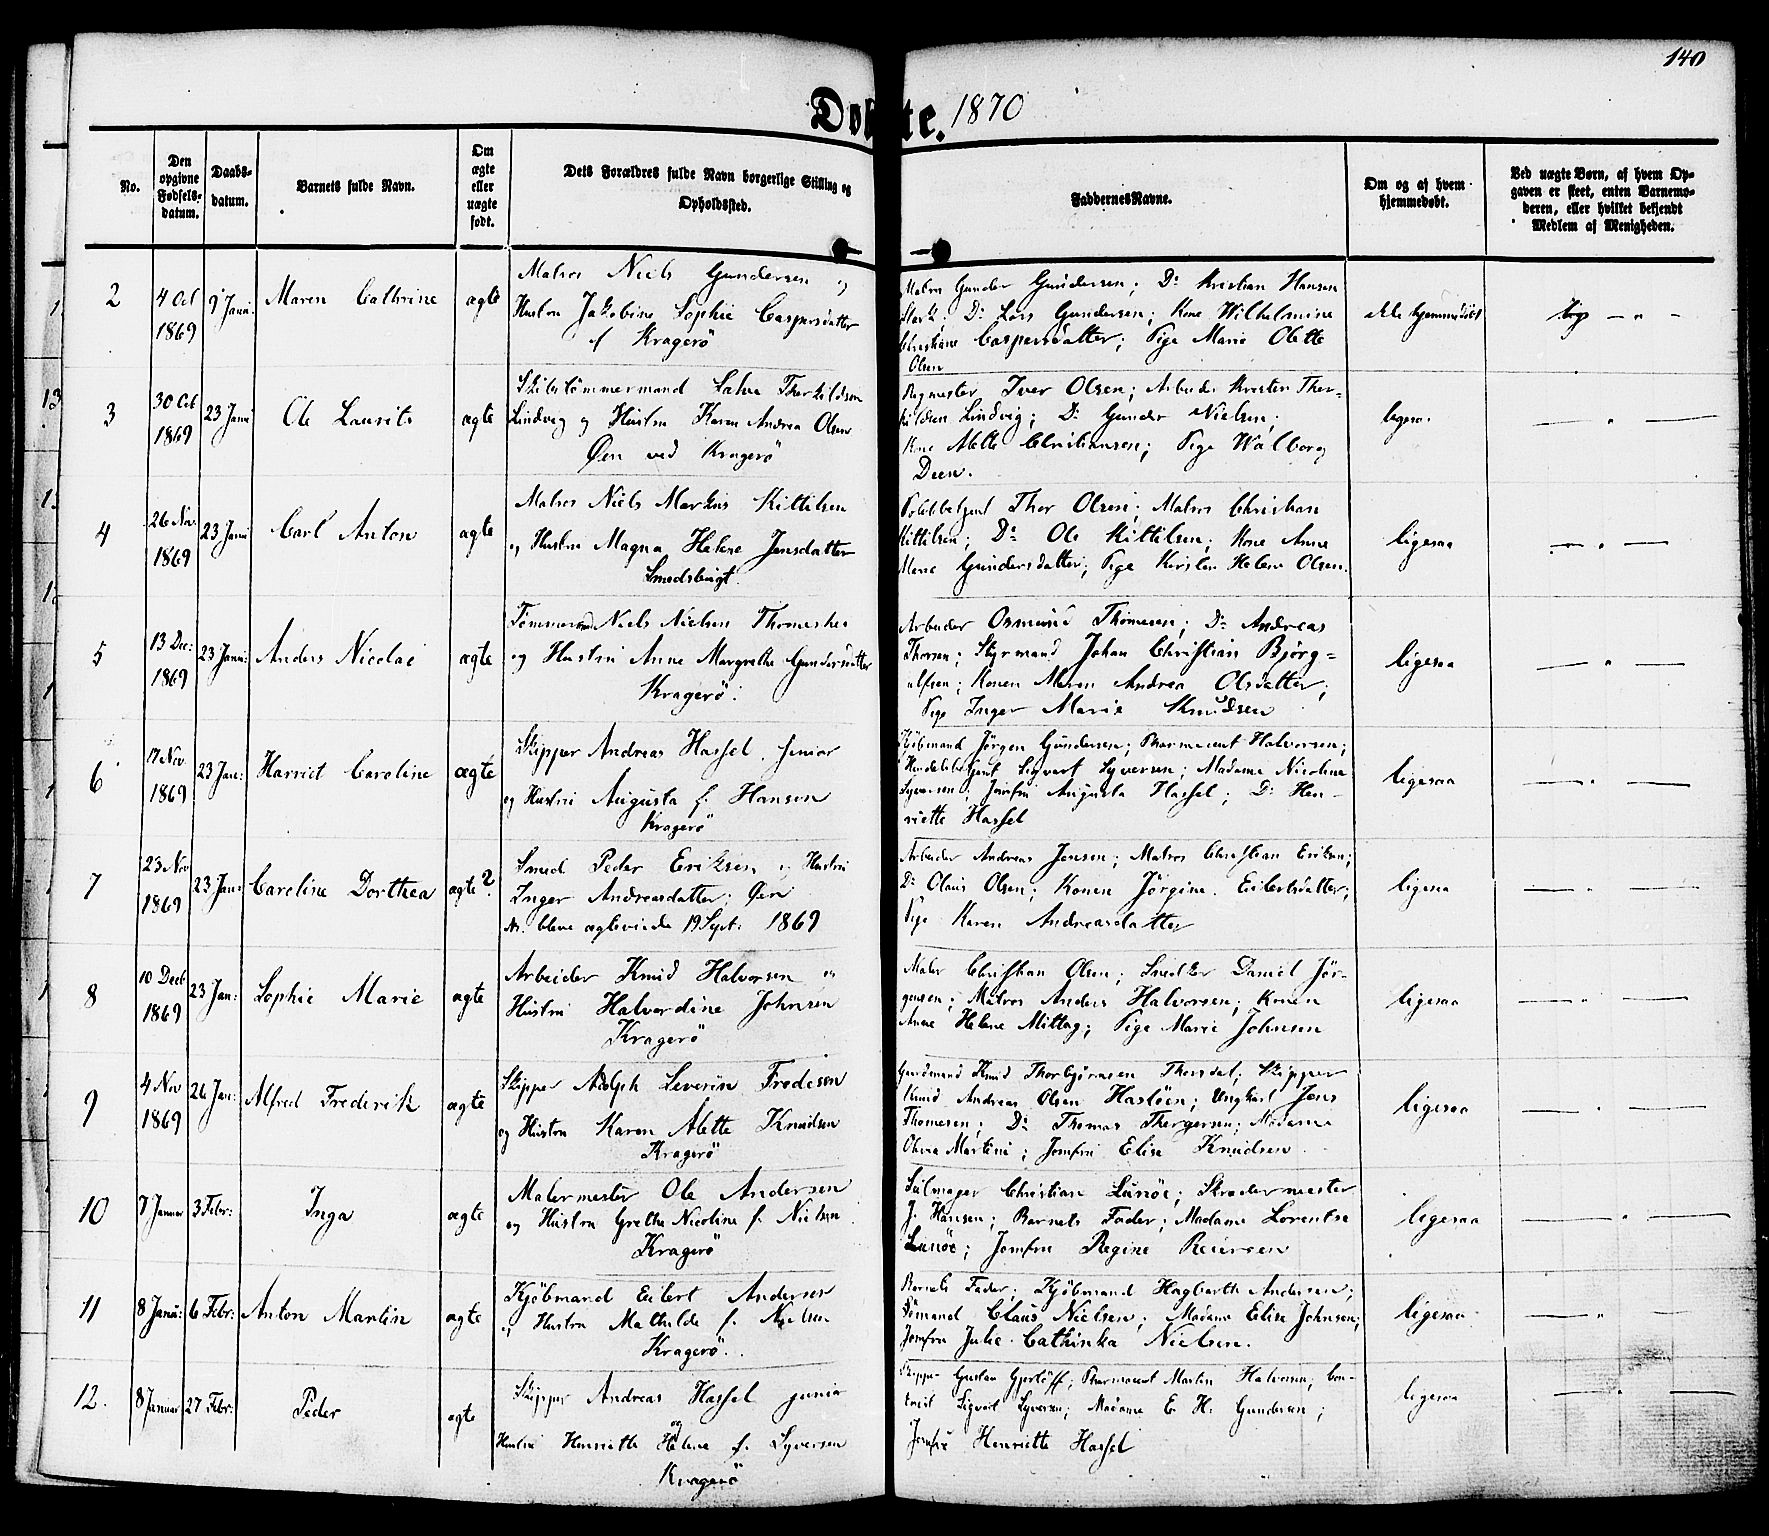 140
Døbte. 1870
No.
Den opgivne Fødsels-datum.
Daabs-datum.
Barnets fulde Navn.
Om ægte eller uægte født.
Dets Forældres fulde Navn borgerlige Stilling og Opholdssted.
Faddernes Navne.
Om og af hvem hjemmedøbt.
Ved uægte Børn, af hvem Op-
gaven er skeet, enten Barnemo-
deren, eller hvilket bekjendt
Medlem af Menigheden.
2
4 Oct 1869
9 Janu:
Maren Cathrine
ægte
Matros Niels Gundersen og
Hustru Jakobine Sophie Caspersdatter
f Kragerö
Matros Gunder Gundersen; Do Kristian Hansen
Do Lars Gundersen; Kone Wilhelmine
Christiane Caspersdatter; Pige Marie Olette
Olsen
ikke hjemmedöbt
3
30 Oct 1869
23 Janu
Ole Laurits
ægte
Skibstömmermand Salve Therkildsen
Lindvig og Hustru Karen Andrea Olsen
Øen ved Kragerö
Bugmester Iver Olsen; Arbeider Kresten Ther-
kildsen Lindvig; Do Gunder Nielsen;
Kone Mette Christiansen; Pige Walborg
Deen.
ligesaa
4
26 Nov. 1869
23 Janu
Carl Anton
ægte
Matros Niels Markus Kittilsen
og Hustru Magna Helene Jensdatter
Smedsbugt.
Thor Olsen; Matros Christian
Kittilsen; Do Ole Kittilsen; Kone Anne
Marie Gundersdatter; Pige Kirsten Helene Olsen.
ligesaa
5
13 Dec: 1869
23 Janu:
Anders Nicolai
ægte
Tömmermand Niels Nielsen Thomesen
og Hustru Anne Margrethe Gundersdatter
Kragerö.
Arbeider Osmund Thomesen; Do Andreas
Thorsen; Styrmand Johan Christian Bjørg-
ulfsen; Konen Maren Andrea Olsdatter;
Pige Inger Marie Knudsen
ligesaa
6
17 Nov. 1869
23 Jan:
Harriet Caroline
ægte
Skipper Andreas Hassel senior
og Hustru Augusta f. Hansen
Kragerö
Kjöbmand Jörgen Gundersen; Pharmaceut Halvorsen;
Handelsbetjent Sigvart Syversen; Madame Nicoline
Syversen; Jomfru Augusta Hassel; Do Hen-
riette Hassel
ligesaa
7
23 Nov 1869
23 Jan:
Caroline Dorthea
ægte?
Smed Peder Eriksen og Hustru
Inger Andreasdatter; Øen
bleve ægteviede 19 Sept: 1869
Arbeider Andreas Jensen; Matros Christian Eriksen;
Do Olaus Olsen; Konen Jörgine Eilertsdatter;
Pige Karen Andreasdatter
ligesaa
8
10 Decb 1869
23 Jan:
Sophie Marie
ægte
Arbeider Knud Halvorsen og
Hustru Halvordine Johnsen
Kragerö
Maler Christian Olsen; Snedker Daniel Jör-
gensen; Matros Anders Halvorsen; Konen
Anne Helene Mittag; Pige Marie Johnsen
ligesaa
9
4 Nov 1869
26 Jan:
Alfred Frederik
ægte
Skipper Adolph Severin Fredesen
og Hustru Karen Alette Knudsen
Kragerö
Gaardmand Knud Thorbjörnsen Thorsdal; Skipper
Knud Andreas Olsen Haslöen; Ungkarl Jens
Thomesen; Do Thomas Thorgersen; Madame
Olava Martine; Jomfru Elise Knudsen
ligesaa
10
7 Januar
3 Febr:
Inga
ægte
Malermester Ole Andersen
og Hustru Grethe Nicoline f. Nielsen
Kragerö
Seilmager Christian Lunöe; Skredermester
J. Hansen; Barnets Fader; Madame Lorentse
Lunöe; Jomfru Regine Reiersen
ligesaa
11
8 Janu:
6 Febr:
Anton Martin
ægte
Kjöbmand Eilert Andersen
og Hustru Mathilde f. Nielsen
Kragerö.
Barnets Fader; Kjöbmand Hagbarth Andersen;
Sömand Claus Nielsen; Madame Elise Johnsen;
Jomfru Julie Cathinka Nielsen.
ligesaa
12.
8 Januar
27 Febr:
Peder
ægte
Skipper Andreas Hassel junior
og
Hustru Henriette Helene f. Syversen
Kragerö
Skipper Gustav Gjerlöff; Pharmaceut Martin Halvorsen;
Sigvart Syversen; Madame E. H. Gundersen;
Jomfru Henriette Hassel
ligesaa